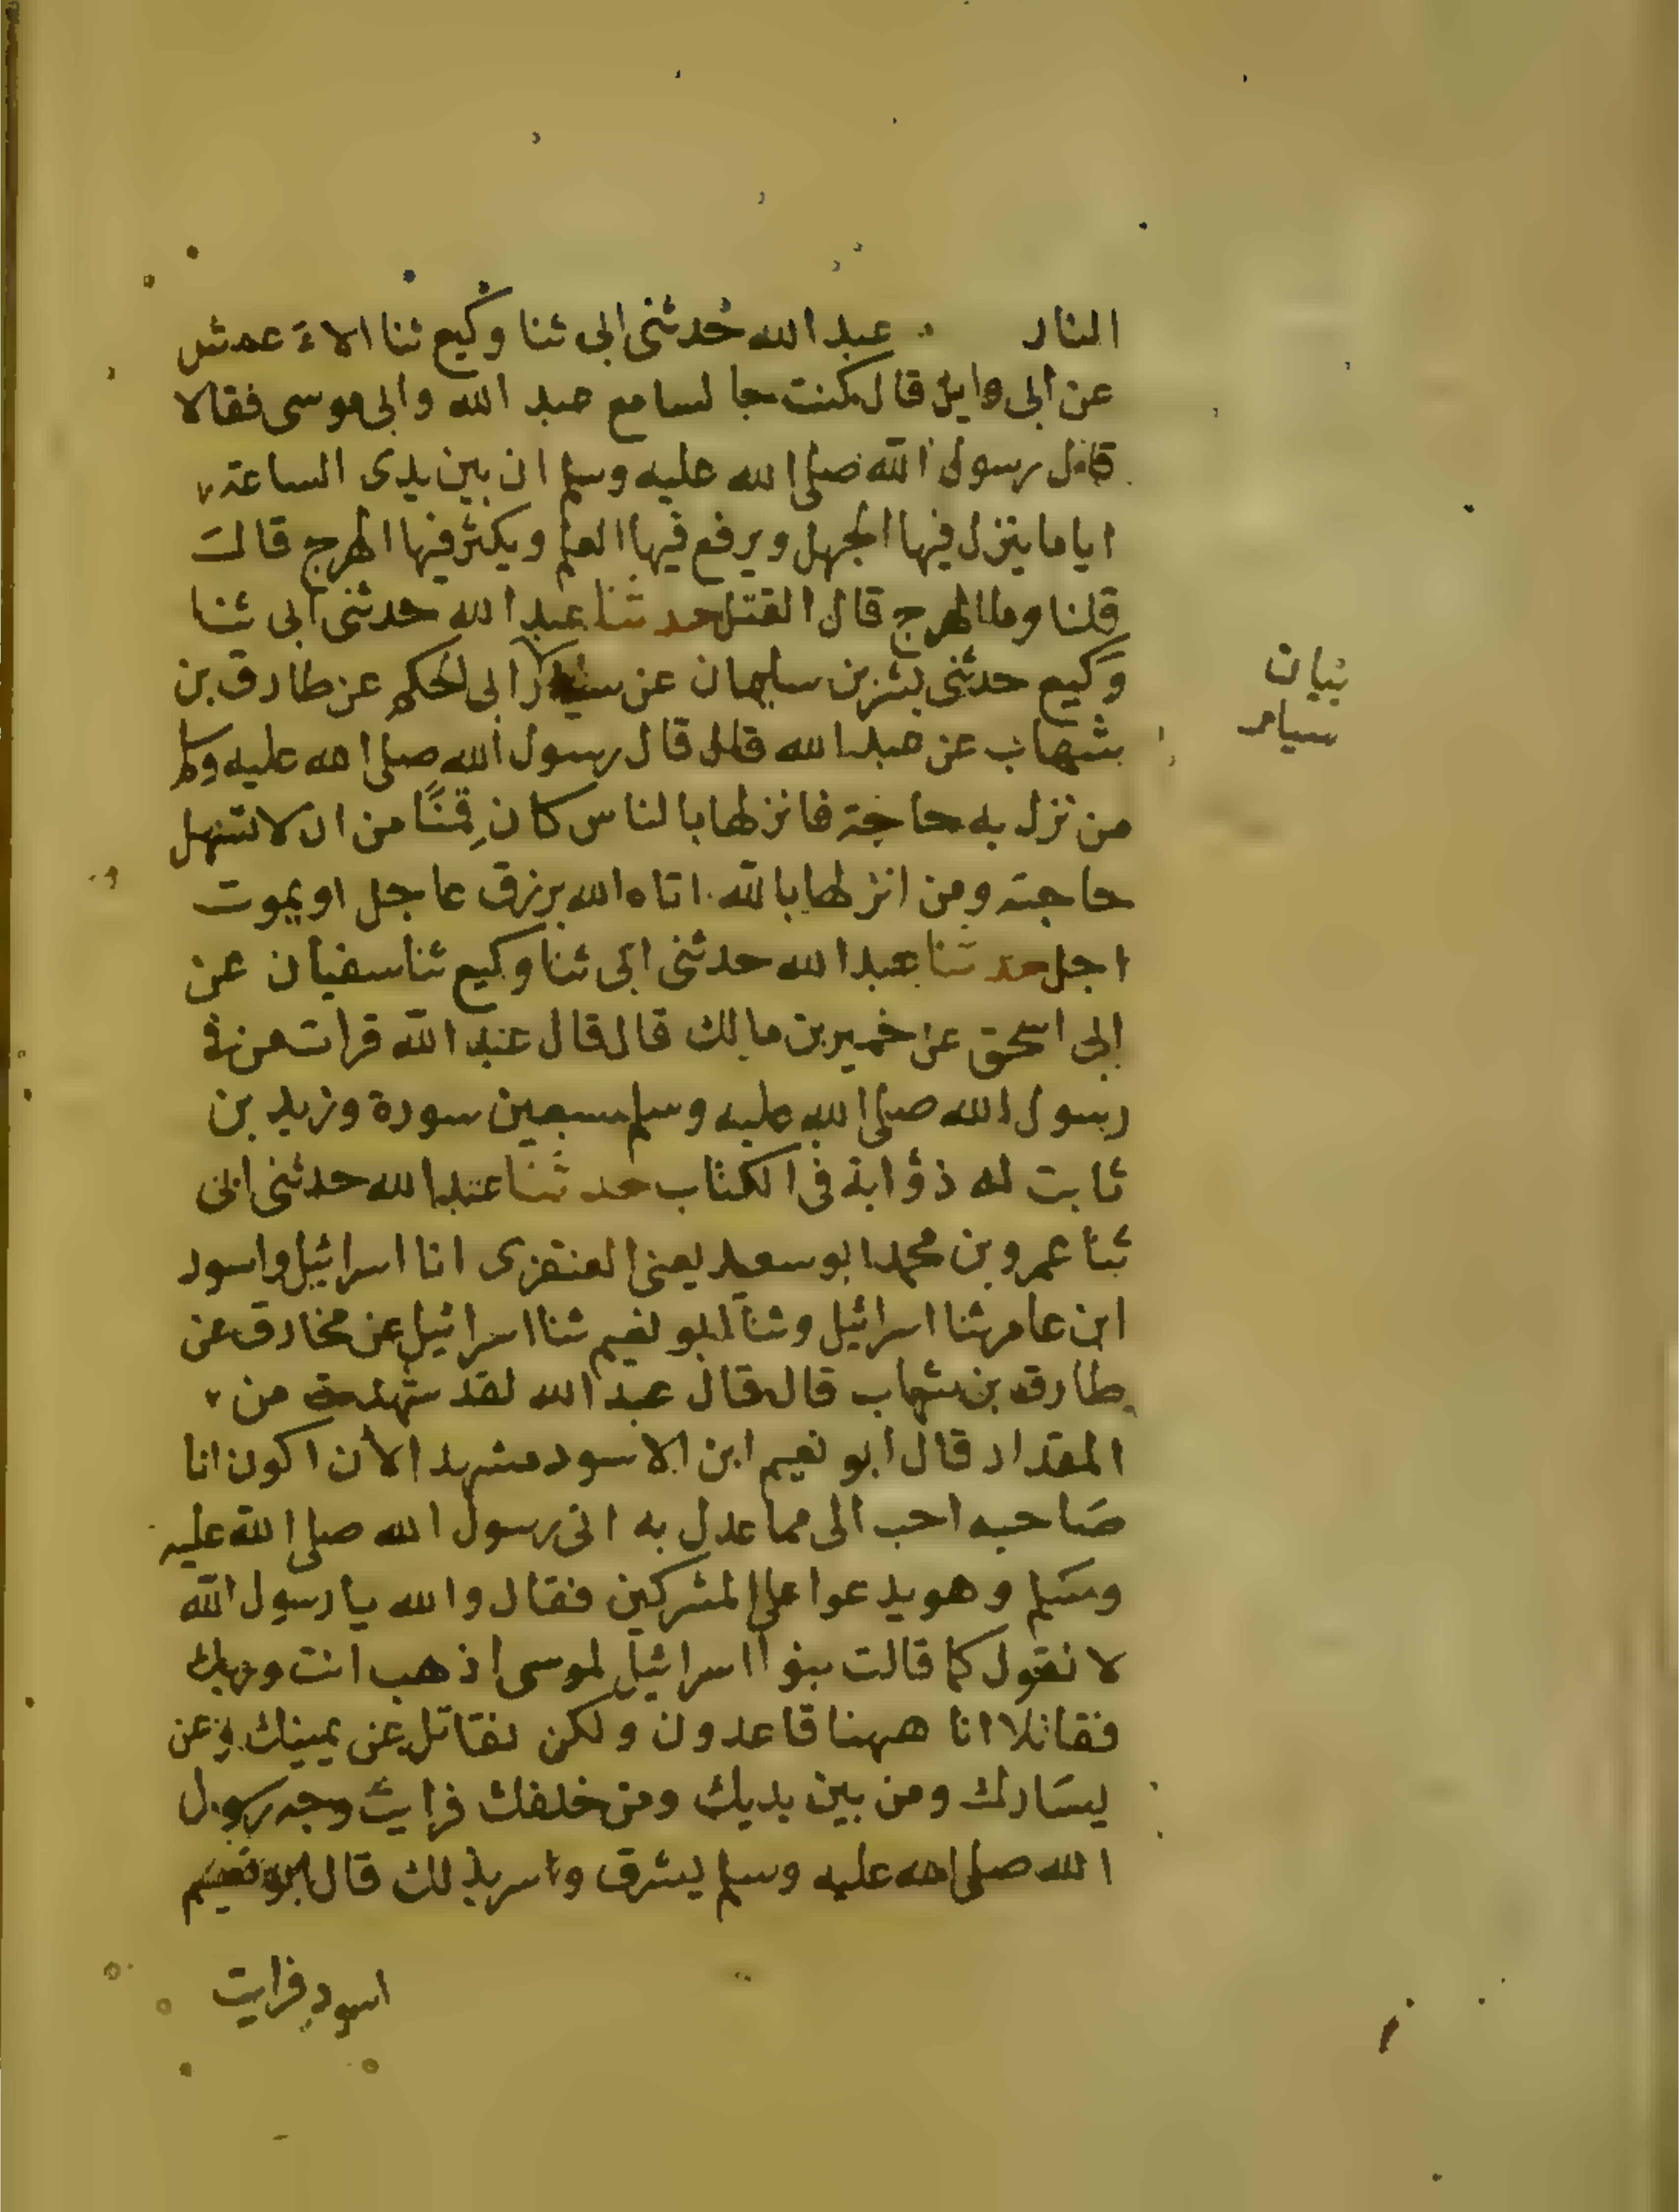 النار عبد الله حدثنى ابى ثنا وكيع ثنا الاعمش
عن ابى وايل قال كنت جالسا مع عبد الله وابى موسى فقالا
قال رسول الله صلى الله عليه وسلم ان بين يدى الساعة
اياما ينزل فيها الجهل ويرفع فيها العلم ويكثر فيها الهرج قال
قلنا وما الهرج قال القتل حدثنا عبد الله حدثنى ابى ثنا
وكيع حدثنى بشر بن سليمان عن سيار ابى الحكم عن طارق بن
شهاب عن عبد الله قال قال رسول الله صلى الله عليه وسلم
من نزل به حاجة فانزلها بالناس كان قمنًا من ان لا تسهل
حاجته ومن انزلها بالله اتاه الله برزق عاجل او بموت
اجل حدثنا عبد الله حدثنى ابى ثنا وكيع ثنا سفيان عن
ابى اسحق عن خمير بن مالك قال قال عبد الله قرات من فى
رسول الله صلى الله عليه وسلم سبعين سورة وزيد بن
ثابت له ذؤابة فى الكتاب حدثنا عبد الله حدثنى ابى
ثنا عمرو بن محمد ابو سعيد يعنى العنقزى انا اسرائيل واسود
ابن عامر ثنا اسرائيل وثنا ابو نعيم ثنا اسرائيل عن مخارق عن
طارق بن شهاب قال قال عبد الله لقد شهدت من
المقداد قال ابو نعيم ابن الاسود مشهد الأن اكون انا
صاحبه احب الى مما عدل به اتى رسول الله صلى الله عليه
وسلم وهو يدعوا على المشركين فقال والله يا رسول الله
لا نقول كما قالت بنوا اسرائيل لموسى اذهب انت وربك
فقاتلا انا ههنا قاعدون ولكن نقاتل عن يمينك وعن
يسارك ومن بين يديك ومن خلفك فرايت وجه رسول
الله صلى الله عليه وسلم يشرق وسر بذلك قال ابو نعيم
اسود فرايت
بيان
سيار